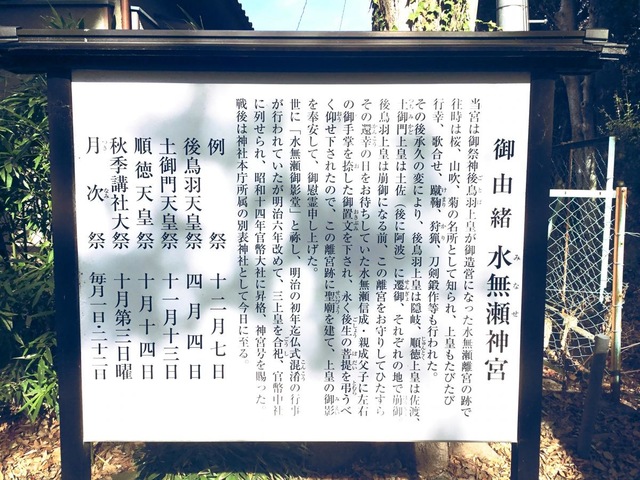 御由緒 水無瀬神宮
当宮は御祭神後鳥羽上皇が御造営になった水無瀬離宮の跡で
往時は桜、山吹、菊の名所として知られ、上皇もたびたび
行幸、歌合せ、蹴鞠、狩猟、刀剣鍛作等も行われた。
その後承久の変により、後鳥羽上皇は隠岐、順徳上皇は佐渡、
土御門上皇は土佐（後に阿波）に遷御、それぞれの地で崩御
後鳥羽上皇は崩御になる前、この離宮をお守りしてひたすら
その還幸の日をお待ちしていた水無瀬信成、親成父子に左右
の御手堂を捺した御置文を下され、永く後生の菩提を弔うべ
く仰せ下されたので、この離宮跡に聖廟を建て、上皇の御影
を奉安して、御慰霊申し上げた。
世に「水無瀬御影堂」と祢し、明治の初年迄仏式混淆の行事
が行われていたが明治六年改めて、三上皇を合祀、官幣中社
に列せられ、昭和十四年官幣大社に昇格、神宮号を賜った。
戦後は神社本庁所属の別表神社として今日に至る。
例祭 十二月七日
後鳥羽天皇祭 四月四日
土御門天皇祭 十一月十三日
順徳天皇祭 十月十四日
秋季講社大祭 十月第三日曜
月次祭 毎月一日・二十二日